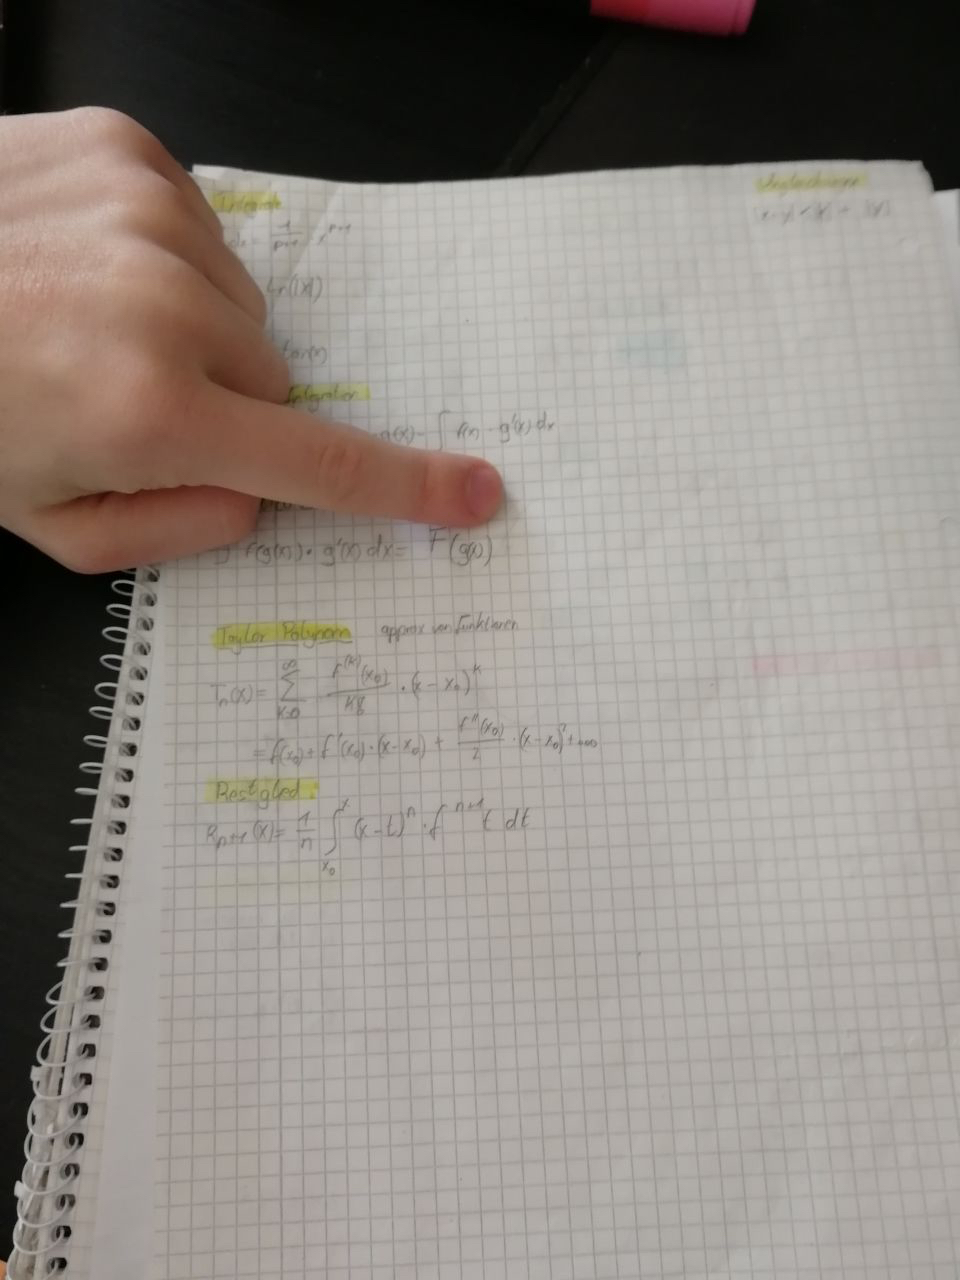 Integrale
Ungleichungen
dx = 1/(p+1) · x^(p+1)
|x-y| < |x| + |y|
ln(|x|)
tan(x)
Integration
g(x) - ∫ f(x) · g'(x) dx
∫ f(g(x)) · g'(x) dx = F(g(x))
Taylor Polynom approx von Funktionen
T_n(x) = ∑_{k=0}^{∞} f^(k)(x_0)/k! · (x - x_0)^k
= f(x_0) + f'(x_0) · (x - x_0) + f''(x_0)/2 · (x - x_0)^2 + ...
Restglied:
R_{n+1}(x) = 1/n ∫_{x_0}^{x} (x - t)^n · f^{n+1} t dt